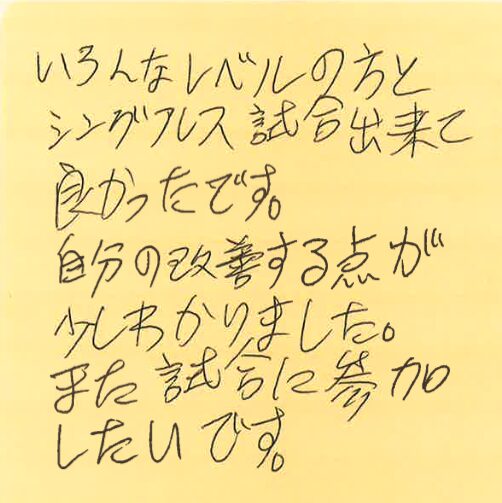 いろんなレベルの方と
シングルス試合出来て
良かったです。
自分の改善する点が
少しわかりました。
また試合に参加
したいです。